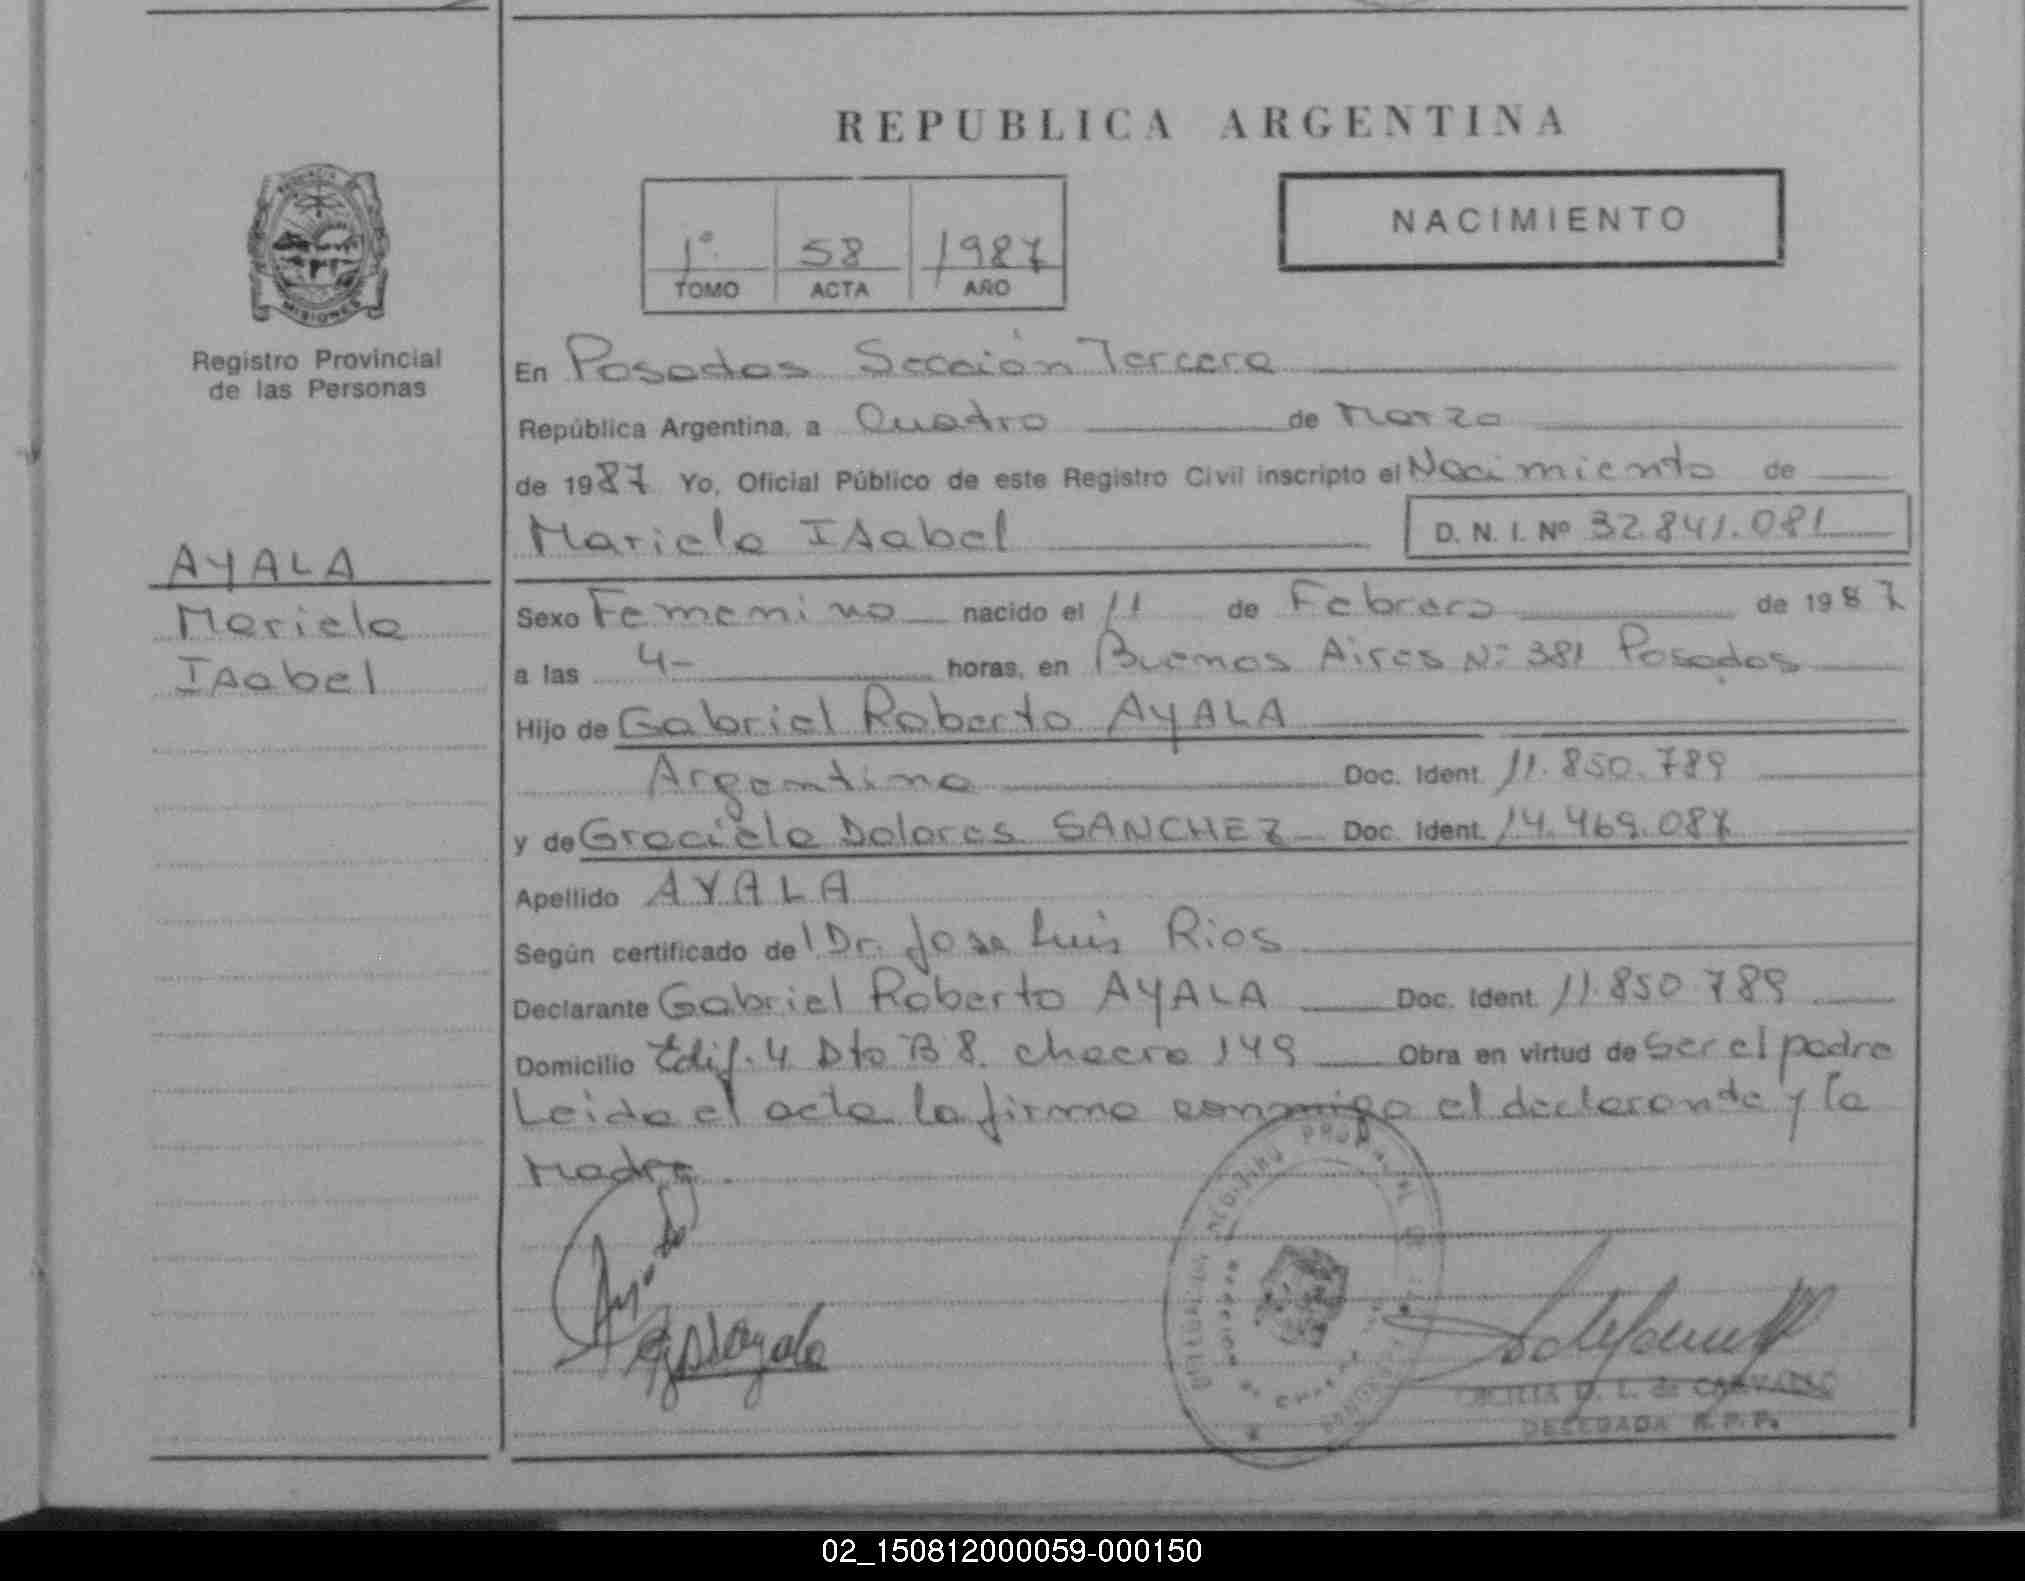 REPUBLICA ARGENTINA
NACIMIENTO
1º 58 1987
TOMO ACTA AÑO
MISIONES
Registro Provincial
de las Personas
AYALA
Mariela
Isabel
En Posadas Sección Tercera
República Argentina, a Cuatro de Marzo
de 1987 Yo, Oficial Público de este Registro Civil inscripto el Nacimiento de
Mariela Isabel D. N. I. Nº 32.841.081
Sexo Femenino nacido el 11 de Febrero de 1987
a las 4- horas, en Buenos Aires Nº 381 Posadas
Hijo de Gabriel Roberto AYALA
Argentino Doc. Ident. 11.850.789
y de Graciela Dolores SANCHEZ Doc. Ident. 14.469.087
Apellido AYALA
Según certificado de l Dr. Jose Luis Rios
Declarante Gabriel Roberto AYALA Doc. Ident. 11.850.789
Domicilio Edif. 4 Dto B 8. chacra 149 Obra en virtud de ser el padre
Leida el acta la firma conmigo el declarante y la
Madre.
de
DELEGADA R.P.P.
02_150812000059-000150